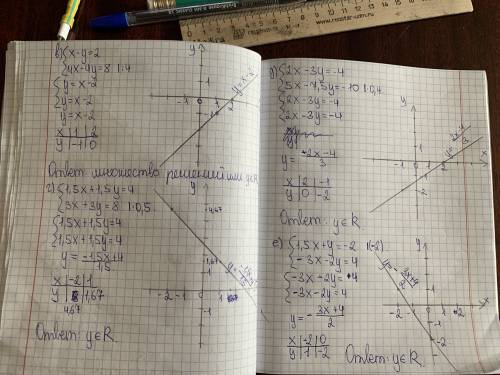 в) { x-y=2
{ 4x-4y=8 |:4
{ y=x-2
{ y=x-2
y=x-2
x | 1 | 2
y | -1 | 0
Ответ: множество решений или y∈R
y=x-2
г) { 1,5x+1,5y=4
{ 3x+3y=8 |:0,5
{ 1,5x+1,5y=4
{ 1,5x+1,5y=4
y= -1,5x+4 / 1,5
x | -2 | 1
y | 4,67 | 1,67
Ответ: y∈R.
д) { 2x-3y=-4
{ 5x-7,5y=-10 |:0,4
{ 2x-3y=-4
{ 2x-3y=-4
y= -2x-4 / 3
x | 2 | -1
y | 0 | -2
Ответ: y∈R.
е) { 1,5x+y=-2 |(-2)
{ -3x-2y=4
{ -3x-2y=4
{ -3x-2y=4
y= - 3x+4 / 2
x | -2 | 0
y | 1 | -2
Ответ: y∈R.